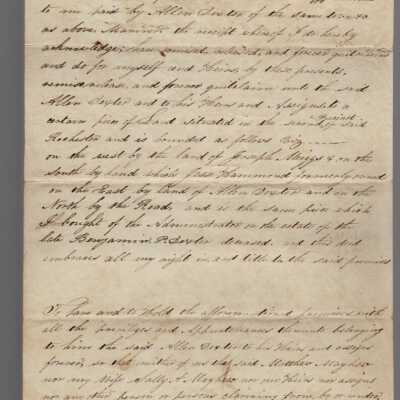 to me paid by Allen Dexter of the same town &
as above. Mariner the receipt whereof I do hereby
acknowledge; have remised, released, and forever quitclaimed
and do for myself and Heirs, by these presents,
remise, release, and forever quitclaim unto the said
Allen Dexter and to his Heirs and Assigns to a
certain piece of Land situated in the second Precinct of said
Rochester and is bounded as follows Viz
on the west by the land of Joseph Meiggs & on the
south by land which Hammond formerly owned
on the East by Land of Allen Dexter and on the
North by the Road, and is the same piece which
I bought of the Administrator on the estate of the
late Benjamin Dexter deceased, and this deed
embraces all my right in and title to the said premises
To have and to Hold the aforementioned premises with
all the Privileges and Appurtenances thereunto belonging
to him the said Allen Dexter to his Heirs and assigns
forever, so that neither of us the said Matthew Mayhew
nor my Wife Sally A. Mayhew nor our Heirs nor assigns
nor any other person or persons claiming from, by or under